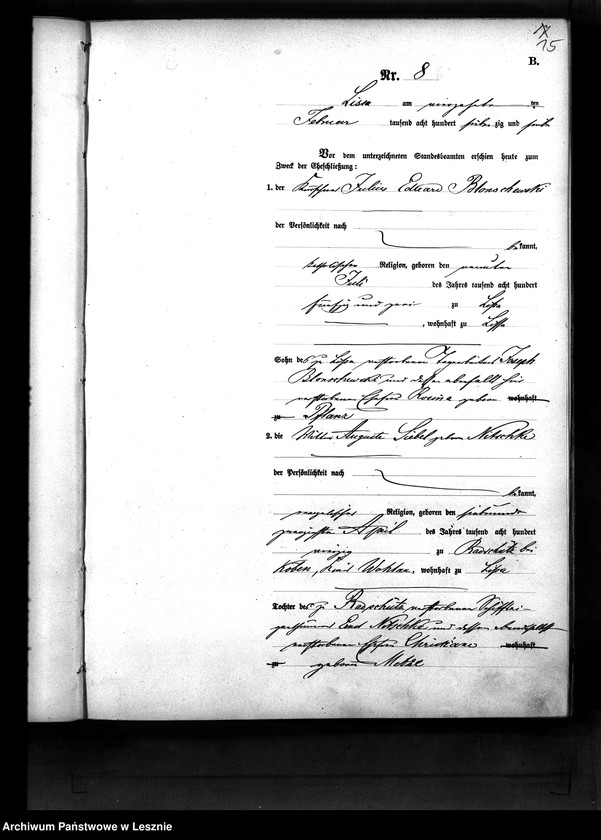 15
B.
Nr. 8
Lissa am vierzehnten
Februar tausend acht hundert siebenzig und
Vor dem unterzeichneten Standesbeamten erschien heute zum
Zweck der Eheschließung:
1. der Julius Eduard Blonschewski
der Persönlichkeit nach
bekannt,
katholischer Religion, geboren den neunten
Juli des Jahres tausend acht hundert
fünfzig und zwei zu Lissa
, wohnhaft zu Lissa
Sohn des zu Lissa verstorbenen Tagearbeiters Joseph
Blonschewski und dessen ebenfalls hier
verstorbenen Ehefrau Rosina geboren wohnhaft
zu Pflanz
2. die Wittwe Auguste Siebel geborne Nitschke
der Persönlichkeit nach
bekannt,
evangelischer Religion, geboren den siebenund
zwanzigsten April des Jahres tausend acht hundert
vierzig zu Radschütz bei
Köben, Kreis Wohlau, wohnhaft zu Lissa
Tochter des zu Radschütz verstorbenen
Nitschke und dessen ebendaselbst
verstorbenen Ehefrau Christiane wohnhaft
zu geborne
Archiwum Państwowe w Lesznie